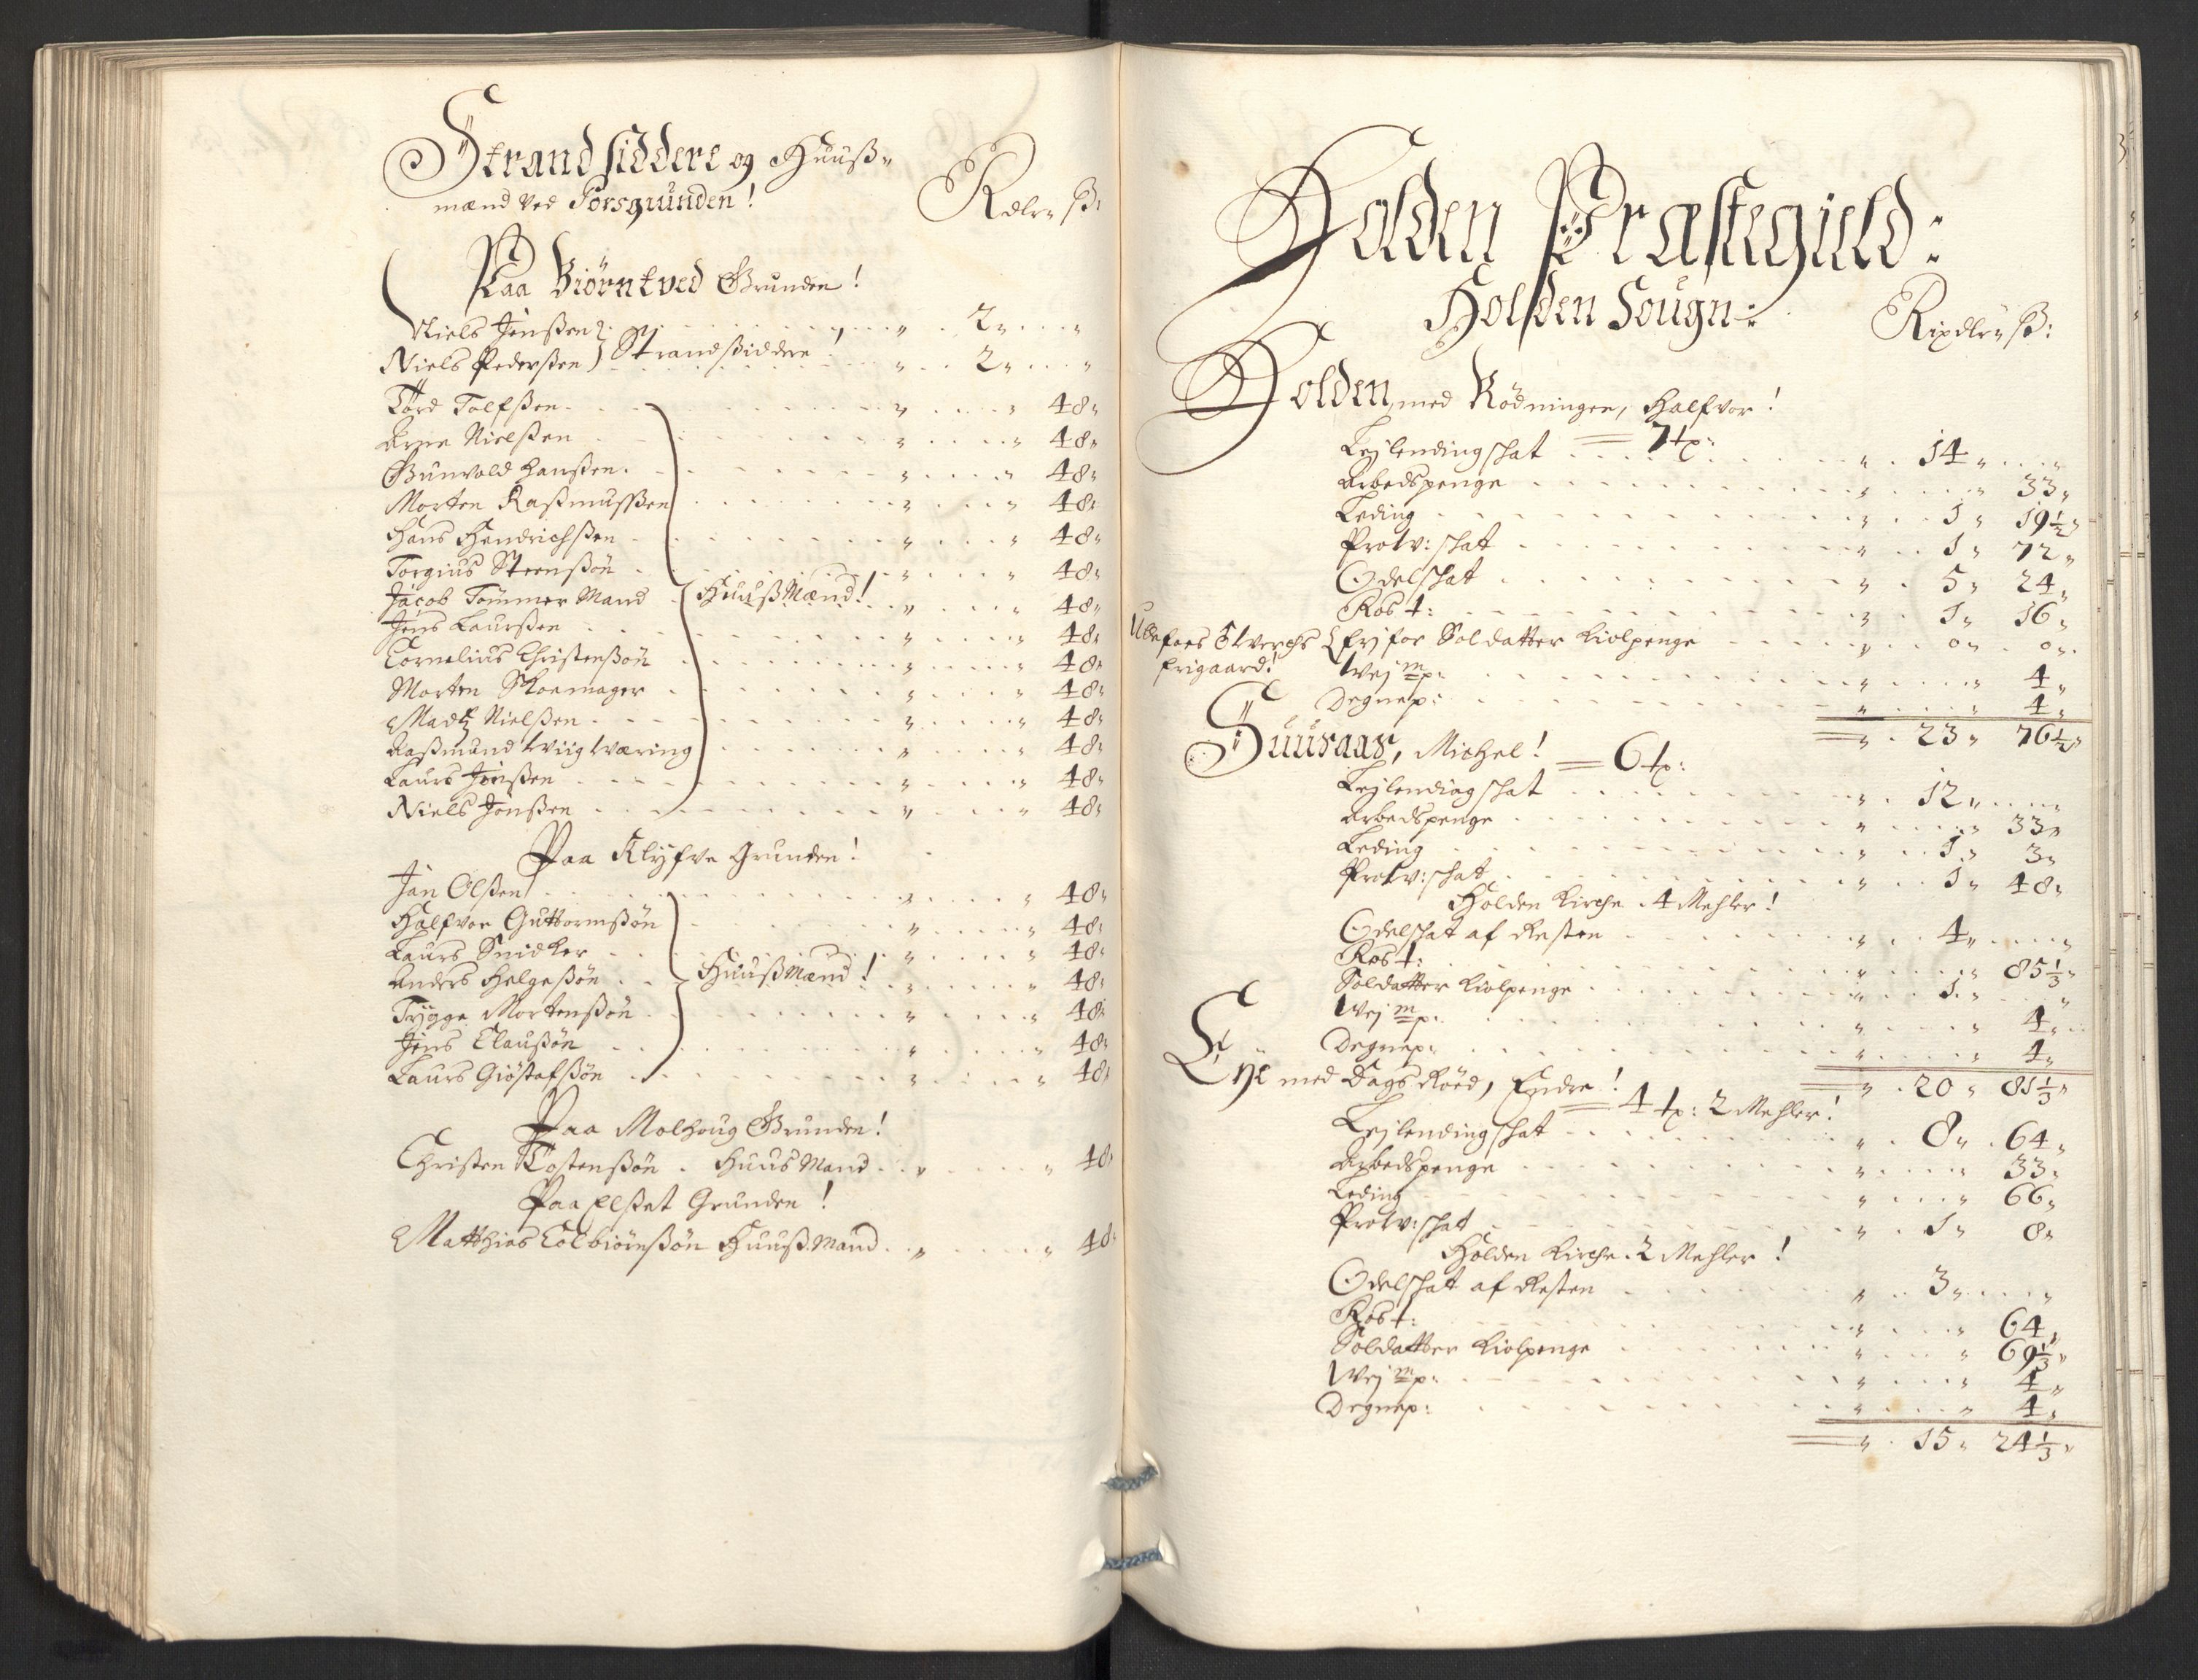 Strandsiddere og Huuß-
mænd ved Porsgrunden!
Rdlr ß:
Paa Biørntved Grunden!
Niels Jenßen 2
Niels Pederßen } Strandßiddere! 2
Tord Tolfßen 48
Arne Nielßen 48
Gunvold Hanßen 48
Morten Raßmusßen 48
Hans Hendrichßen 48
Torgius Steenßøn 48
Jacob Tømmer Mand } HuußMænd! 48
Jens Laurßen 48
Cornelius Christenßøn 48
Morten Skoemager 48
Madtz Nielßen 48
Raßmund Wiigwæring 48
Laurs Jenßen 48
Niels Jenßen 48
Paa Klyfve Grunden!
Jan Olßen 48
Halfvor Guttormßøn 48
Laurs Snidker 48
Anders Helgeßøn } HuußMænd! 48
Tygge Mortenßøn 48
Jens Claußøn 48
Laurs Giøstafßøn 48
Paa Molhoug Grunden!
Christen Tostenßøn. HuusMand 48
Paa Elßet Grunden!
Matthias Colbiørnßøn HuußMand 48
Holden Præstegield:
Holden Sougn:
Rixdlr ß:
Holden med Rødningen, Halfvor!
7 tp:
Leylendingschat 14
Arbedspenge 33
Leding 1 19½
Prow:schat 1 72
Odelschat 5 24
Ros t: 1 16
Udefoes Elverchs { fry for Soldatter Kiolpenge 0 0
frigaard!
Wej mp: 4
Degnep: 4
23 76½
Suuraas, Michel! 6 tp:
Leylendingschat 12
Arbedspenge 33
Leding 1 3
Prow:schat 1 48
Holden Kirche 4 Mehler!
Odelschat af Resten 4
Ros t: 85⅓
Soldatter Kiolpenge 1
Wej mp: 4
Degnep: 4
20 81⅓
Eye med Dags Røed, Endre! 4 tp: 2 Mehler!
Leylendingschat 8 64
Arbedspenge 33
Leding 66
Prow:schat 1 8
Holden Kirche 2 Mehler!
Odelschat af Resten 3
Ros t: 64
Soldatter Kiolpenge 69⅓
Wej mp: 4
Degnep: 4
15 24⅓